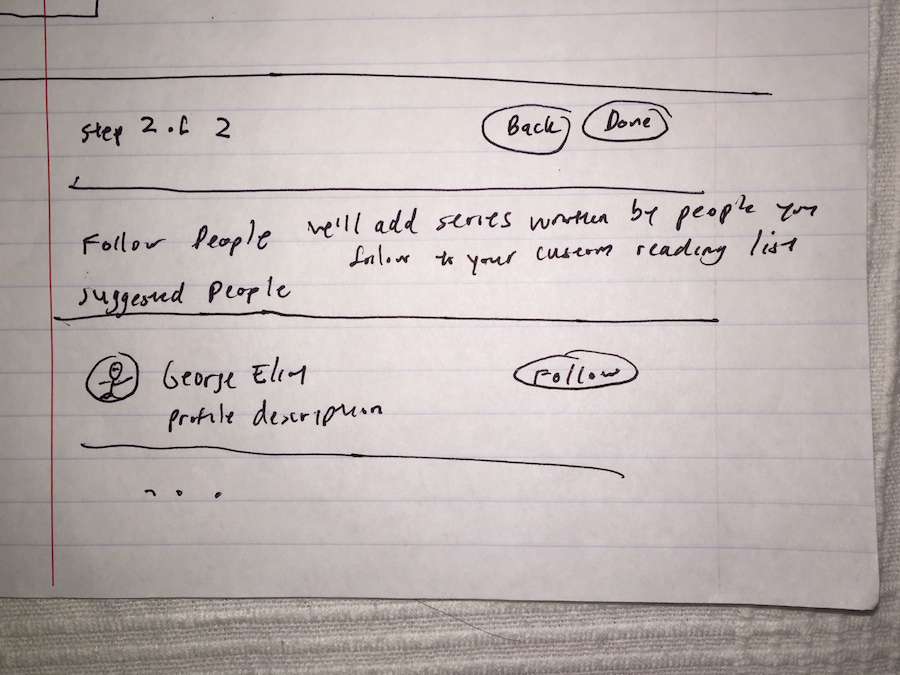 Step 2 of 2
Back
Done
Follow People we'll add series written by people you
follow to your custom reading list
Suggested People
George Eliot
Follow
profile description
...